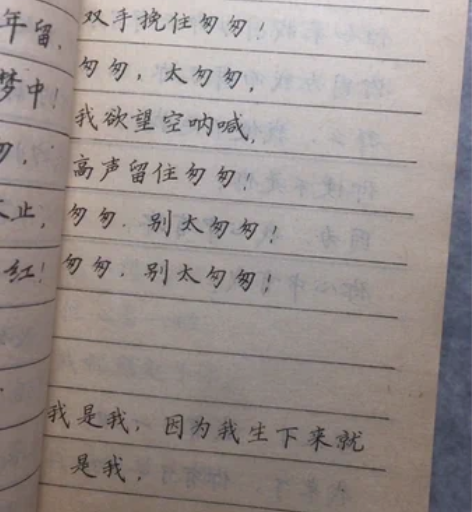 年留,
梦中!
止,
红!
双手挽住匆匆!
匆匆,太匆匆,
我欲望空呐喊,
高声留住匆匆!
匆匆.别太匆匆!
匆匆.别太匆匆!
我是我,因为我生下来就
是我,